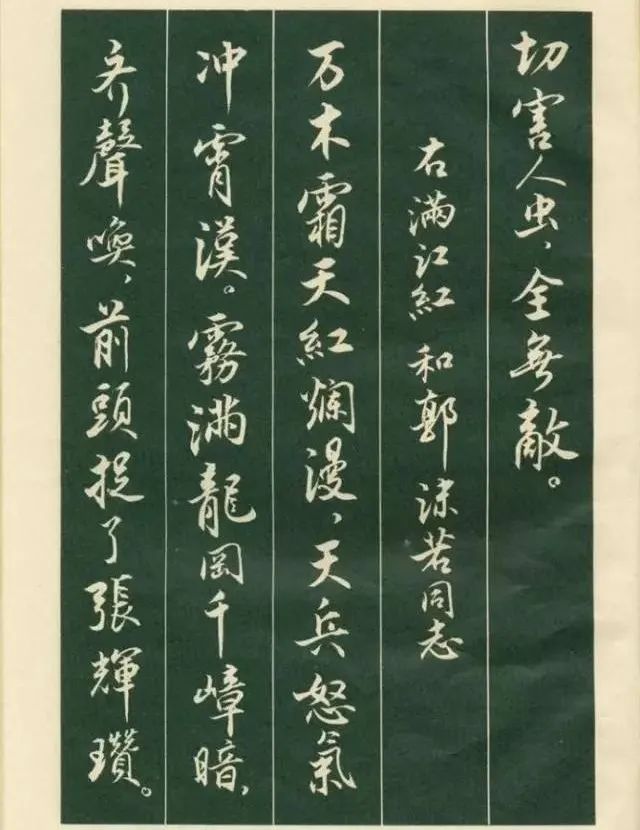 切害人虫，全無敵。
右滿江紅 和郭沫若同志
万木霜天紅爛漫，天兵怒氣
冲霄漢。霧滿龍岡千嶂暗，
齐聲喚，前頭捉了張輝瓚。